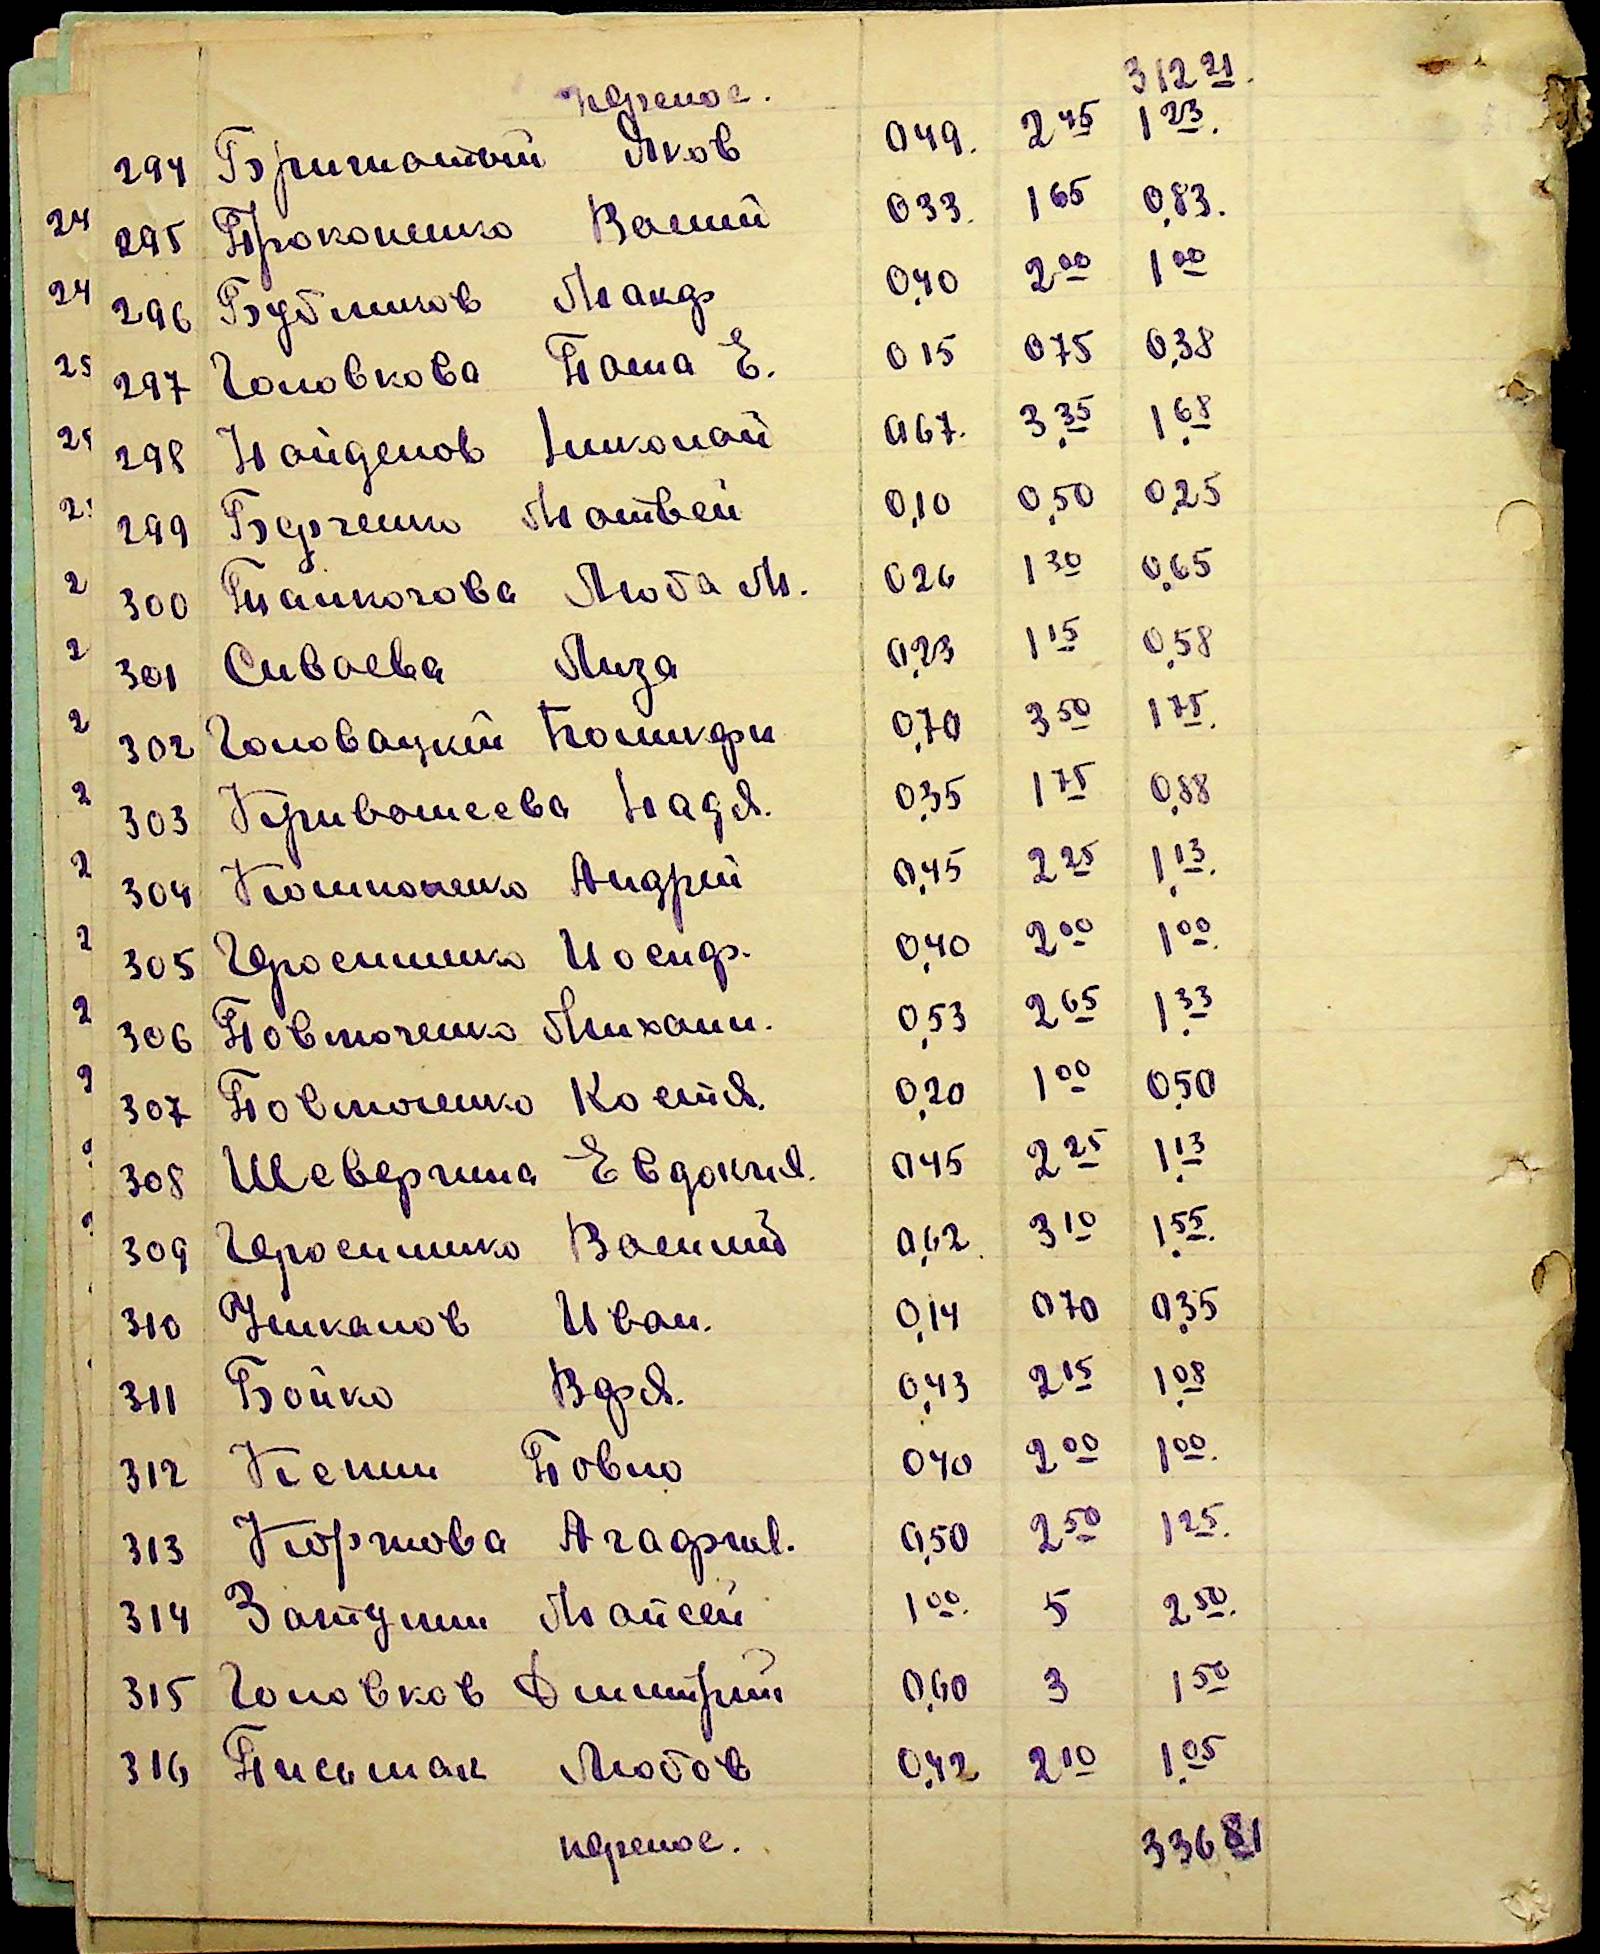 перенос. 312 21.
294 Брижатый Яков 0 49. 2 45 1 23.
295 Прокопенко Васлий 0 33. 1 65 0,83.
296 Бубликов Макар 0,40 2 00 1 00
297 Головкова Паша Е. 0 15 0 75 0,38
298 Найденов Николай 0,67. 3,35 1,68
299 Берченко Матвей 0,10 0,50 0,25
300 Люба М. 0 26 1 30 0,65
301 Сиваева Лиза 0,23 1 15 0,58
302 Головацкий 0,70 3 50 1 75.
303 Кривошеева Надя. 0,35 1 75 0,88
304 Андрей 0,45 2 25 1,13.
305 Герасименко Иосиф. 0,40 2 00 1 00.
306 Павлюченко Михаил. 0,53 2 65 1,33
307 Павлюченко Костя. 0,20 1 00 0,50
308 Шевергина Евдокия. 0 45 2 25 1,13
309 Герасименко Василий 0,62. 3 10 1,55.
310 Ушкалов Иван. 0,14 0 70 0,35
311 Бойко Вера. 0,43 2 15 1,08
312 Павло 0 40 2 00 1 00.
313 Коржова Агафия. 0,50 2 50 1 25.
314 Майсей 1 00. 5 2 50.
315 Головков Дмитрий 0,60 3 1 50
316 Письмак Любов 0,42 2 10 1,05
перенос. 336 81